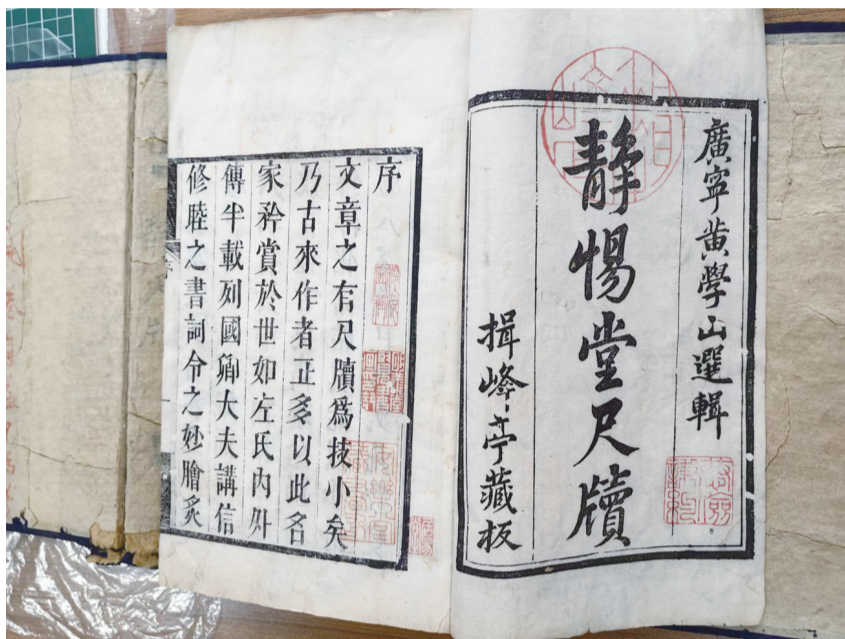 廣寧黃學山選輯
靜惕堂尺牘
揖峰亭藏板
序
文章之有尺牘為技小矣
乃古來作者正多以此名
家矜賞於世如左氏內外
傳半載列國卿大夫講信
修睦之書詞令之妙膾炙